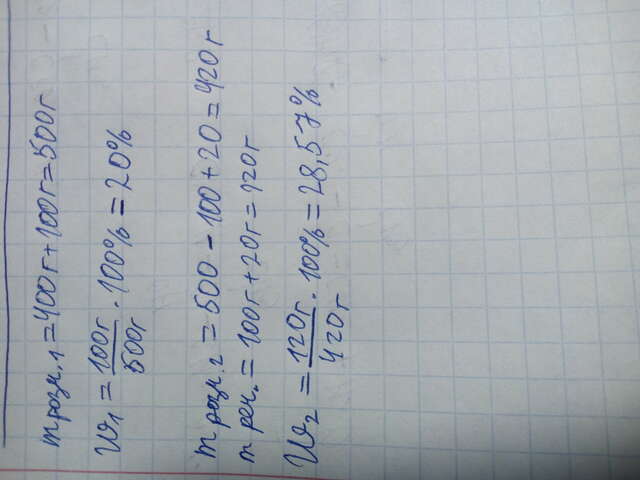 m розч.1 = 400г + 100г = 500г
W1 = 100г/500г · 100% = 20%
m розч.2 = 500 - 100 + 20 = 420г
m реч. = 100г + 20г = 120г
W2 = 120г/420г · 100% = 28,57%